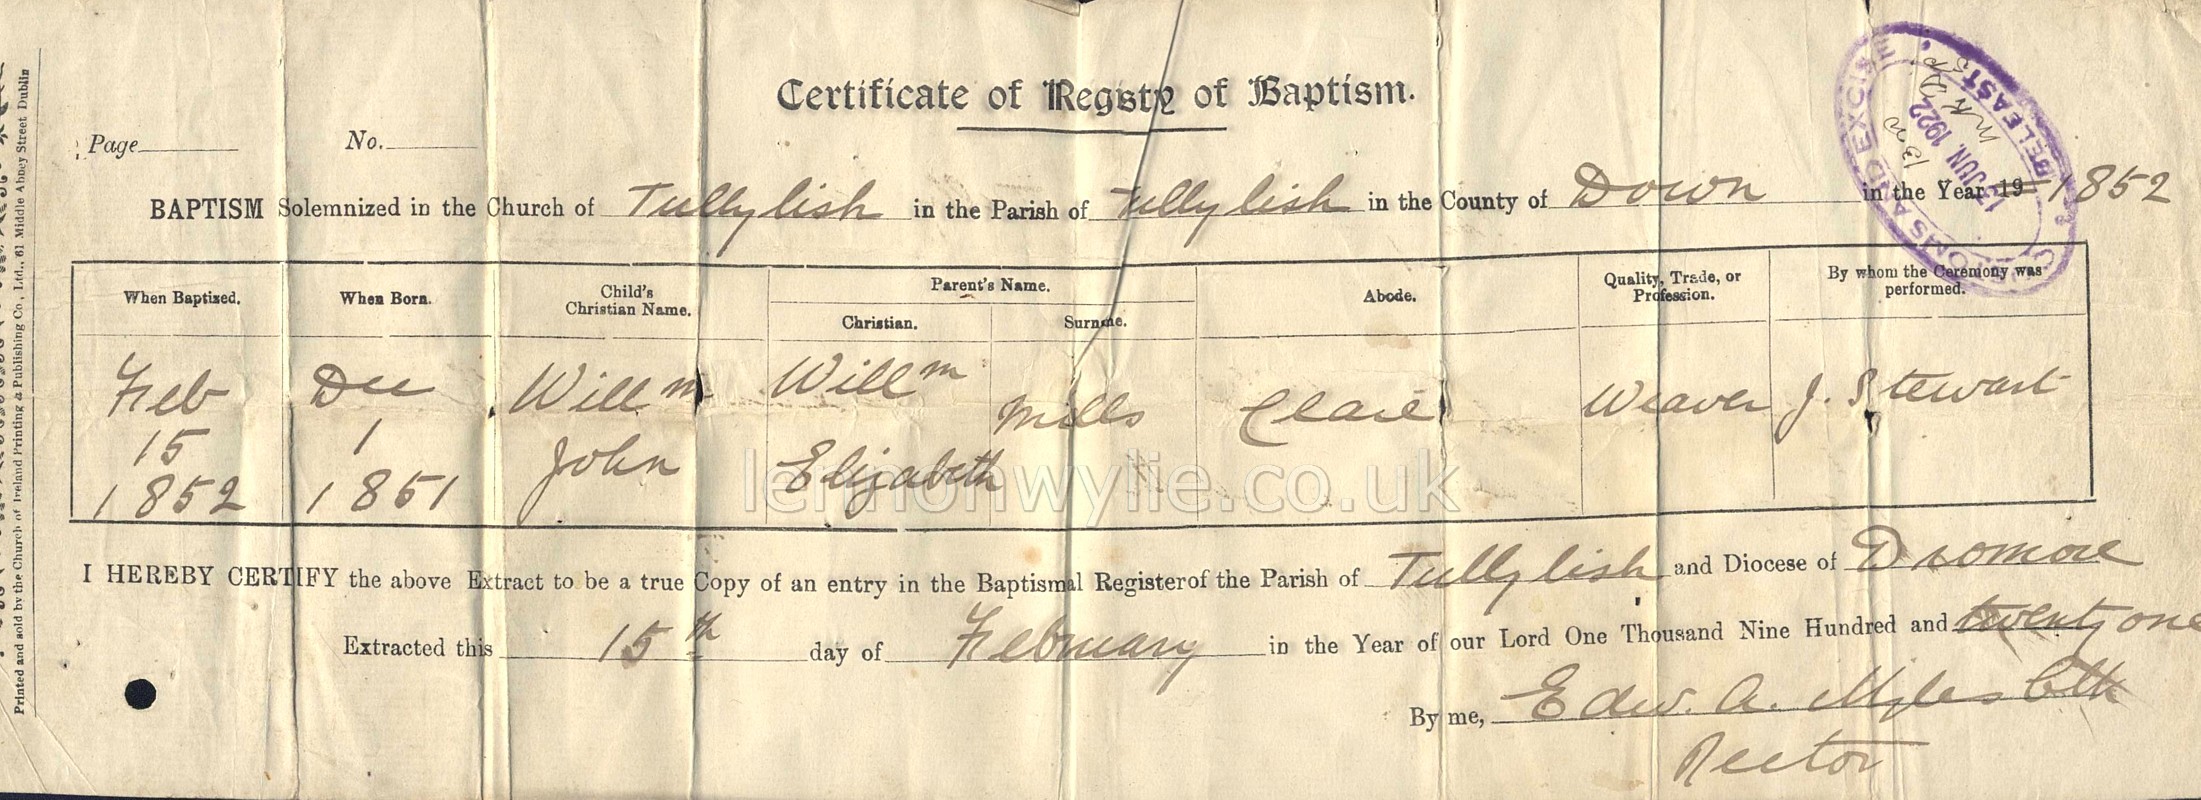 Certificate of Registy of Baptism.
Page No.
BAPTISM Solemnized in the Church of Tullylish in the Parish of Tullylish in the County of Down in the Year 19 1852
When Baptized. When Born. Child's Christian Name. Parent's Name. Christian. Surname. Abode. Quality, Trade, or Profession. By whom the Ceremony was performed.
Feb Dec Willm Willm Mills Clare Weaver J. Stewart
15 1 John Elizabeth
1852 1851
lennonwylie.co.uk
I HEREBY CERTIFY the above Extract to be a true Copy of an entry in the Baptismal Register of the Parish of Tullylish and Diocese of Dromore
Extracted this 15th day of February in the Year of our Lord One Thousand Nine Hundred and twenty one
By me, Edw. A. Myles
Rector
Printed and sold by the Church of Ireland Printing & Publishing Co., Ltd., 61 Middle Abbey Street Dublin
CUSTOMS AND EXCISE
JUN. 1922
BELFAST